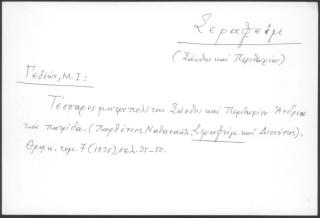 Σεραφείμ
(Ξάνθης καὶ Περιθωρίου)
Γεδεών, Μ.Ι.:
Τέσσαρες μητροπολῖται Ξάνθης καὶ Περιθωρίου Ἄνδριοι
τὴν πατρίδα. (Παρθένιος, Ναθαναήλ, Σεραφείμ καὶ Διονύσιος).
Θρακ. τόμ. 7 (1936), σελ. 35-50.